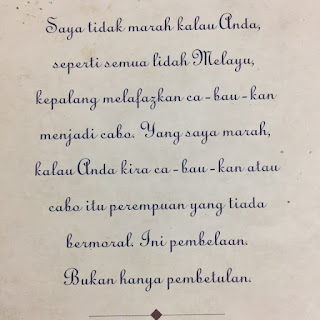 Saya tidak marah kalau Anda,
seperti semua lidah Melayu,
kepalang melafazkan ca-bau-kan
menjadi cabo. Yang saya marah,
kalau Anda kira ca-bau-kan atau
cabo itu perempuan yang tiada
bermoral. Ini pembelaan.
Bukan hanya pembetulan.